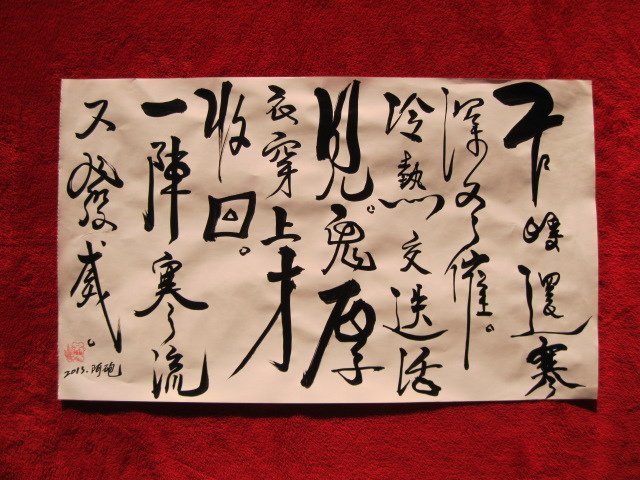 乍暖還寒
深冬催。
冷熱交迭活
見鬼。厚
衣穿上才
收回。
一陣寒流
又發威。
2013.阿